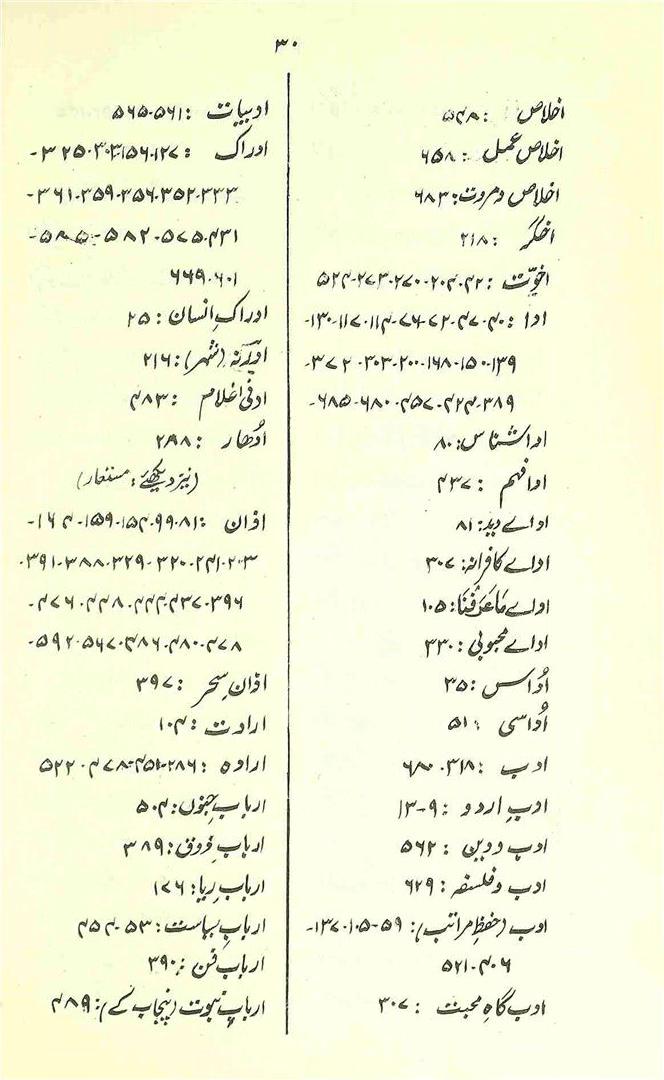 ۳۰
اخلاص : ۵۴۸
اخلاص عمل : ۶۵۸
اخلاص و مروت: ۶۸۳
اخگر : ۲۱۸
اخوّت : ۴۲۔۲۰۴۔۲۷۰۔۲۷۳۔۵۲۴
ادا : ۴۰۔۴۷۔۷۲۔۷۶۔۱۱۴۔۱۱۷۔۱۳۰۔
۱۳۹۔۱۵۰۔۱۶۸۔۲۰۰۔۳۰۳۔۳۷۲۔
۳۸۹۔۴۲۴۔۴۵۷۔۶۸۰۔۶۸۵۔
ادا شناس: ۸۰
ادا فہم : ۴۳۷
اداے دید: ۸۱
اداے کافرانہ: ۳۰۷
اداے مَا عَرَفْنَا: ۱۰۵
اداے محبوبی : ۳۳۰
اُداس : ۳۵
اُداسی : ۵۱
ادب : ۳۱۸۔۶۸۰
ادبِ اردو : ۹۔۱۳
ادب و دین : ۵۶۲
ادب و فلسفہ : ۶۲۹
ادب (حفظِ مراتب): ۵۹۔۱۰۵۔۱۳۷۔
۴۰۶۔۵۲۱
ادب گاہِ محبت : ۳۰۷
ادبیات : ۵۶۱۔۵۶۵
ادراک : ۱۲۷۔۱۵۶۔۳۰۳۔۳۲۵۔
۳۳۳۔۳۵۲۔۳۵۶۔۳۵۹۔۳۶۱۔
۴۳۱۔۵۷۵۔۵۸۲۔۵۸۵۔
۶۰۱۔۶۶۹
ادراکِ انسان : ۲۵
(شہر): ۲۱۶
: ۴۸۳
اُدھار : ۲۹۸
(نیز دیکھئے: مستعار)
اذان : ۸۱۔۹۹۔۱۵۴۔۱۵۹۔۱۶۴۔
۲۰۳۔۲۴۱۔۳۲۰۔۳۲۹۔۳۸۸۔۳۹۱۔
۳۹۶۔۴۳۷۔۴۴۴۔۴۴۸۔۴۷۶۔
۴۷۸۔۴۸۰۔۴۸۶۔۵۶۷۔۵۹۲۔
اذانِ سحر : ۳۹۷
ارادت : ۱۰۴
ارادہ : ۲۸۶۔۴۵۱۔۴۷۸۔۵۲۲
اربابِ جنوں: ۵۰۴
اربابِ ذوق: ۳۸۹
اربابِ ریا: ۱۷۶
اربابِ سیاست: ۵۳۔۴۵۴
اربابِ فن : ۳۹۰
اربابِ نبوت (پنجاب کے): ۴۸۹